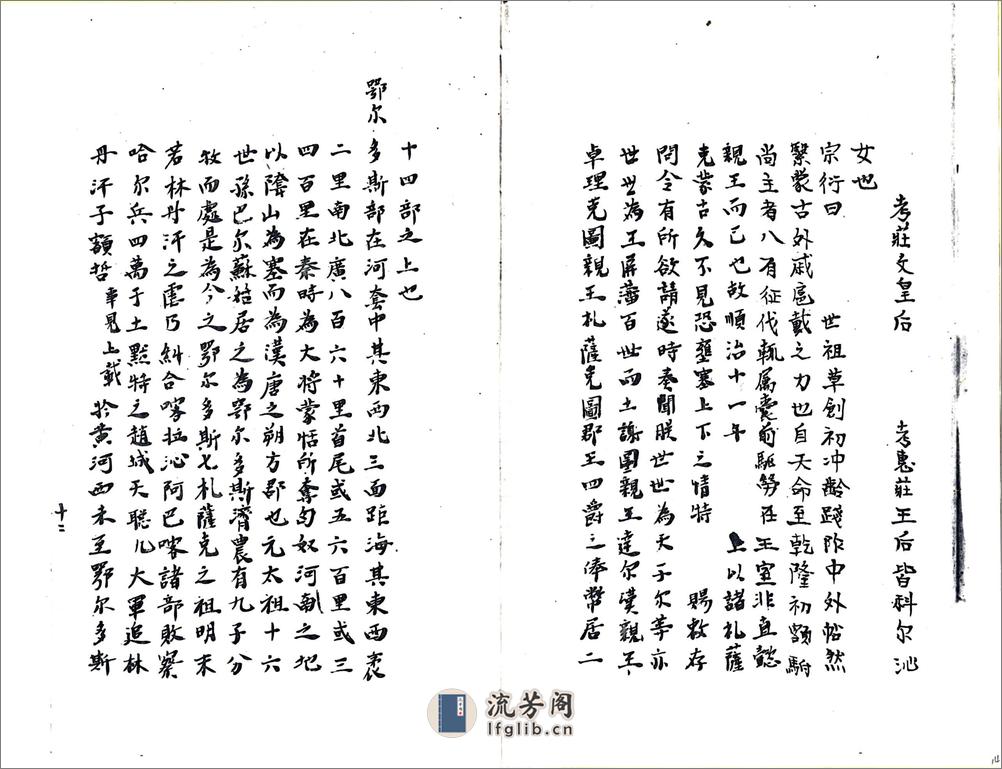 孝莊文皇后　孝惠莊王后皆科尔沁
女也
宗衍曰　世祖草創初冲齡踐阼中外帖然
繄蒙古外戚扈戴之力也自天命至乾隆初額駙
尚主者八有征伐輒属橐前駈勞在王室非直懿
親王而已也故順治十一年　上以諸札薩
克蒙古久不見恐壅塞上下之情特　賜敕存
問令有所欲請遂時奏聞朕世世為天子尔等亦
世世為王屏藩百世而土謝圖親王達尔漢親王
卓理克圖親王札薩克圖郡王四爵之俸幣居二
十四部之上也
鄂尔多斯部在河套中其東西北三面距海其東西袤
二里南北廣八百六十里首尾或五六百里或三
四百里在秦時為大将蒙恬所奪匈奴河南之地
以陰山為塞而為漢唐之朔方郡也元太祖十六
世孫巴尔蘇始居之為鄂尔多斯濟農有九子分
牧而處是為今之鄂尔多斯七札薩克之祖明末
若林丹汗之虐乃糾合喀拉沁阿巴喀諸部敗察
哈尔兵四萬于土黙特之趙城天聡八大軍追林
丹汗子額哲事見上載於黄河西未至鄂尔多斯
十二
流芳阁
lfglib.cn